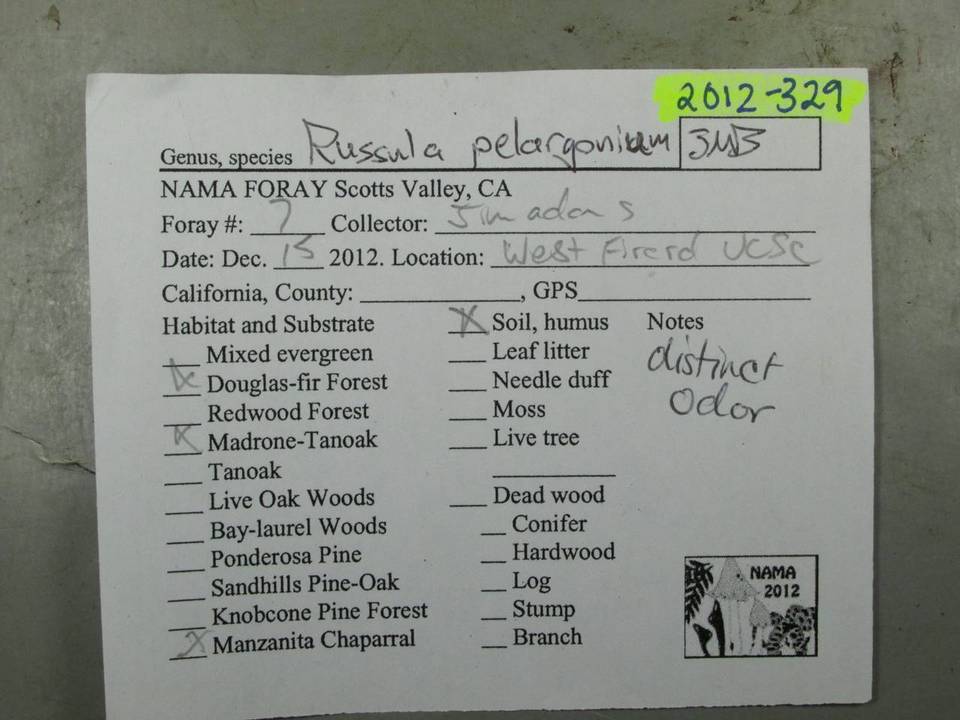 2012-329
Genus, species Russula pelargonium JMB
NAMA FORAY Scotts Valley, CA
Foray #: 7 Collector: Jim adams
Date: Dec. 15 2012. Location: West Fire rd UCSC
California, County: ____________, GPS____________
Habitat and Substrate
___ Mixed evergreen
X Douglas-fir Forest
___ Redwood Forest
X Madrone-Tanoak
___ Tanoak
___ Live Oak Woods
___ Bay-laurel Woods
___ Ponderosa Pine
___ Sandhills Pine-Oak
___ Knobcone Pine Forest
X Manzanita Chaparral
X Soil, humus
___ Leaf litter
___ Needle duff
___ Moss
___ Live tree
___ Dead wood
__ Conifer
__ Hardwood
__ Log
__ Stump
__ Branch
Notes
distinct
Odor
NAMA
2012